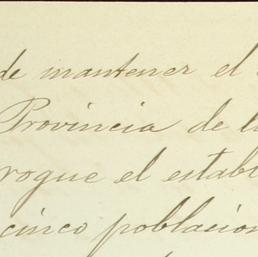 de mantener el
Provincia de l
rogue el establ
cinco poblacion